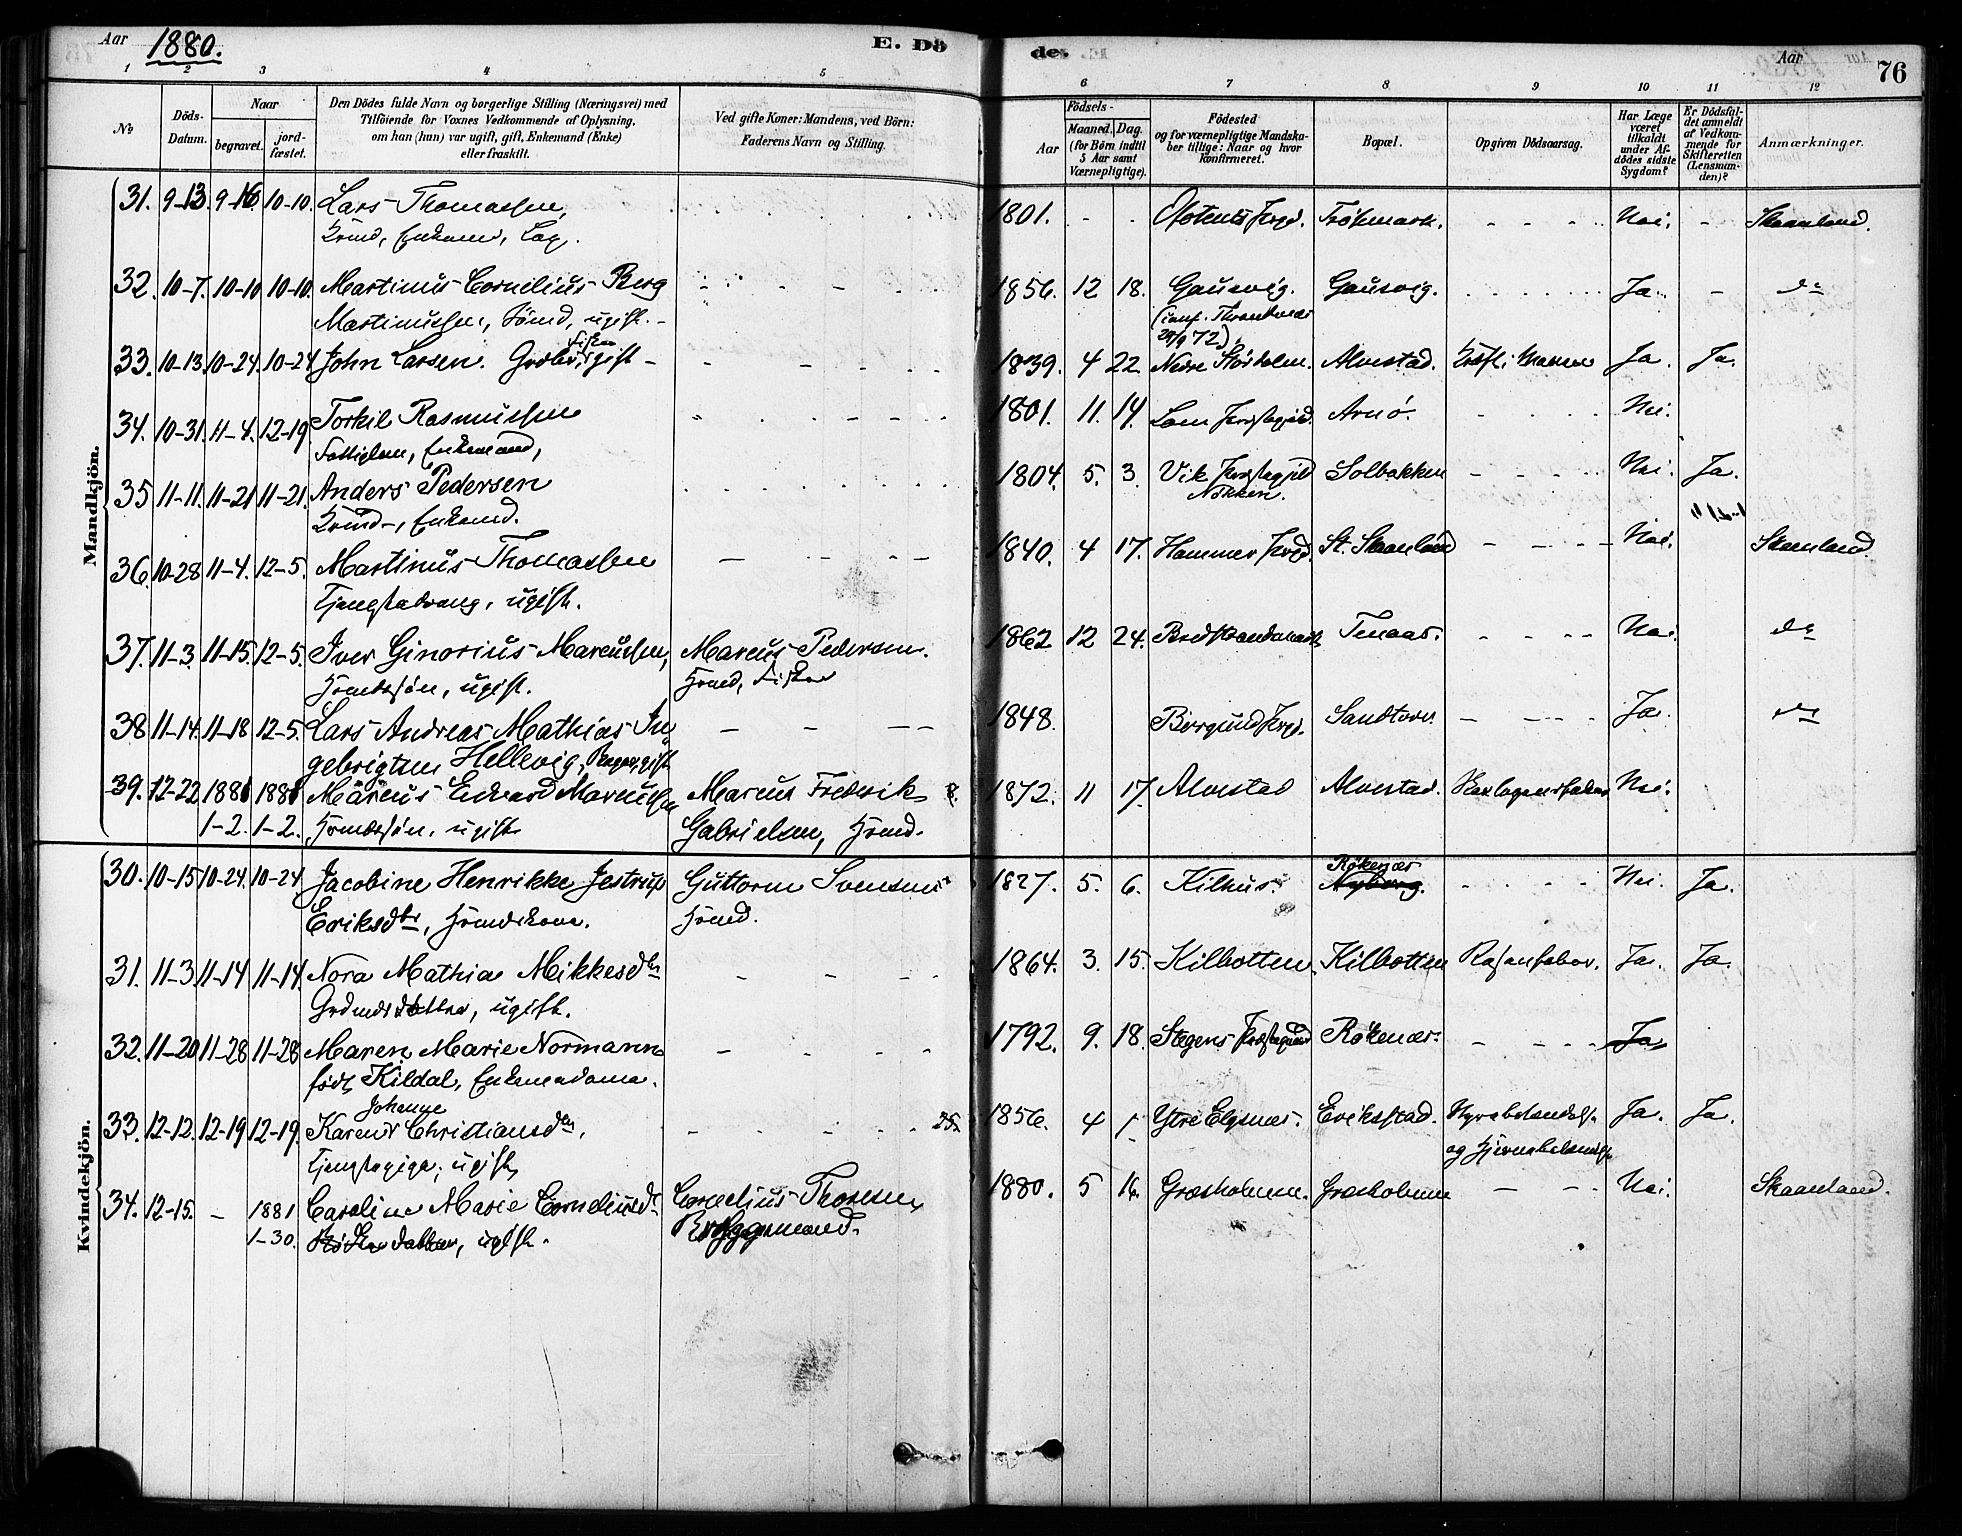 Aar 1880. E. Dö
de. Aar 76
1 2 3 4 5
6 7 8 9 10 11 12
№
Döds-Datum.
Naar
begravet.
jordfæstet.
Den Dödes fulde Navn og borgerlige Stilling (Næringsvei) med
Tilföiende for Voxnes Vedkommende af Oplysning,
om han (hun) var ugift, gift, Enkemand (Enke)
eller fraskilt.
Ved gifte Koner: Mandens, ved Börn:
Faderens Navn og Stilling.
Födsels-
Aar
Maaned. Dag.
(for Börn indtil
5 Aar samt
Værnepligtige).
Födested
og for værnepligtige Mandska-
ber tillige: Naar og hvor
konfirmeret.
Bopæl.
Opgiven Dödsaarsag.
Har Læge
været
tilkaldt
under Af-
dödes sidste
Sygdom?
Er Dödsfal-
det anmeldt
af Vedkom-
mende for
Skifteretten
(Lensman-
den)?
Anmærkninger.
Mandkjön.
31. 9-13 9-16 10-10. Lars Thomassen, 1801. - - Ofotens Prgd. Nei. - Skaanland.
32. 10-7. 10-10 10-10. Martinus Cornelius Berg 1856. 12 18. Gausvig. Gausvig. Ja. - do
Martinussen, ugift.
(conf. Throndenes
29/9 72).
33. 10-13. 10-24. 10-24 John Larsen. Gift 1839. 4 22. Nedre Alvestad. Ja. Ja.
34. 10-31. 11-4. 12-19. Torkil Rasmussen 1801. 11. 14. Lom Præstegjeld. Arnö. Nei.
Fattiglem, Enkemand,
35 11-11. 11-21 11-21. Anders Pedersen 1804. 5. 3. Vik Præstegjeld Solbakken Nei. Ja.
36. 10-28 11-4. 12-5. Martinus Thomassen 1840. 4 17. Hammer Prgd. St. Skaanland Nei. Skaanland.
Tjenestedreng, ugift.
37. 11-3. 11-15. 12-5. Iver Ginorius Marcussen, Marcus Pedersen. 1862 12 24. Tenaas. Nei. do
Hsmdssön, ugift. Hsmd, Fisker
38 11-14. 11-18 12-5. Lars Andreas Mathias In- 1848. Borgund Prgd. Sandtorv. Ja. do
gebrigtsen Hellevig, gift
39. 12-22 1881 1881 Marcus Edvard Marcussen Marcus Fredrik 1872. 11 17. Alvestad Alvestad. Nei.
1-2. 1-2. Hsmdssön, ugift. Gabrielsen, Hsmd.
Kvindekjön.
30. 10-15 10-24. 10-24. Jacobine Henrikke Jestrup Guttorm Svensen 1827. 5. 6. Kilhus. Rökenæs Nei. Ja.
Nyborg.
Eriksdtr, Hsmdskone. Hsmd.
31. 11-3 11-14 11-14. Nora Mathia Mikkelsdtr 1864. 3. 15. Kilbotten Kilbotten Ja. Ja.
Grdmdsdatter, ugift.
32. 11-20 11-28 11-28 Maren Marie Normann 1792. 9. 18. Stegens Præstegjeld Rökenæs. Ja
född Kildal, Enkemadame.
Johanne
33. 12-12. 12-19 12-19. Karens Christiansdtr, 1856. 4 1 Ytre Elgsnæs. Eriksstad. Nyrebetændelse Ja. Ja.
Tjenestepige, ugift og Hjernebetændelse
34. 12-15. - 1881 Caroline Marie Corneliusdtr Cornelius Thoresen 1880. 5 16. Græsholmen. Græsholmen Nei. Skaanland.
1-30. datter, ugift. Ryggemand.